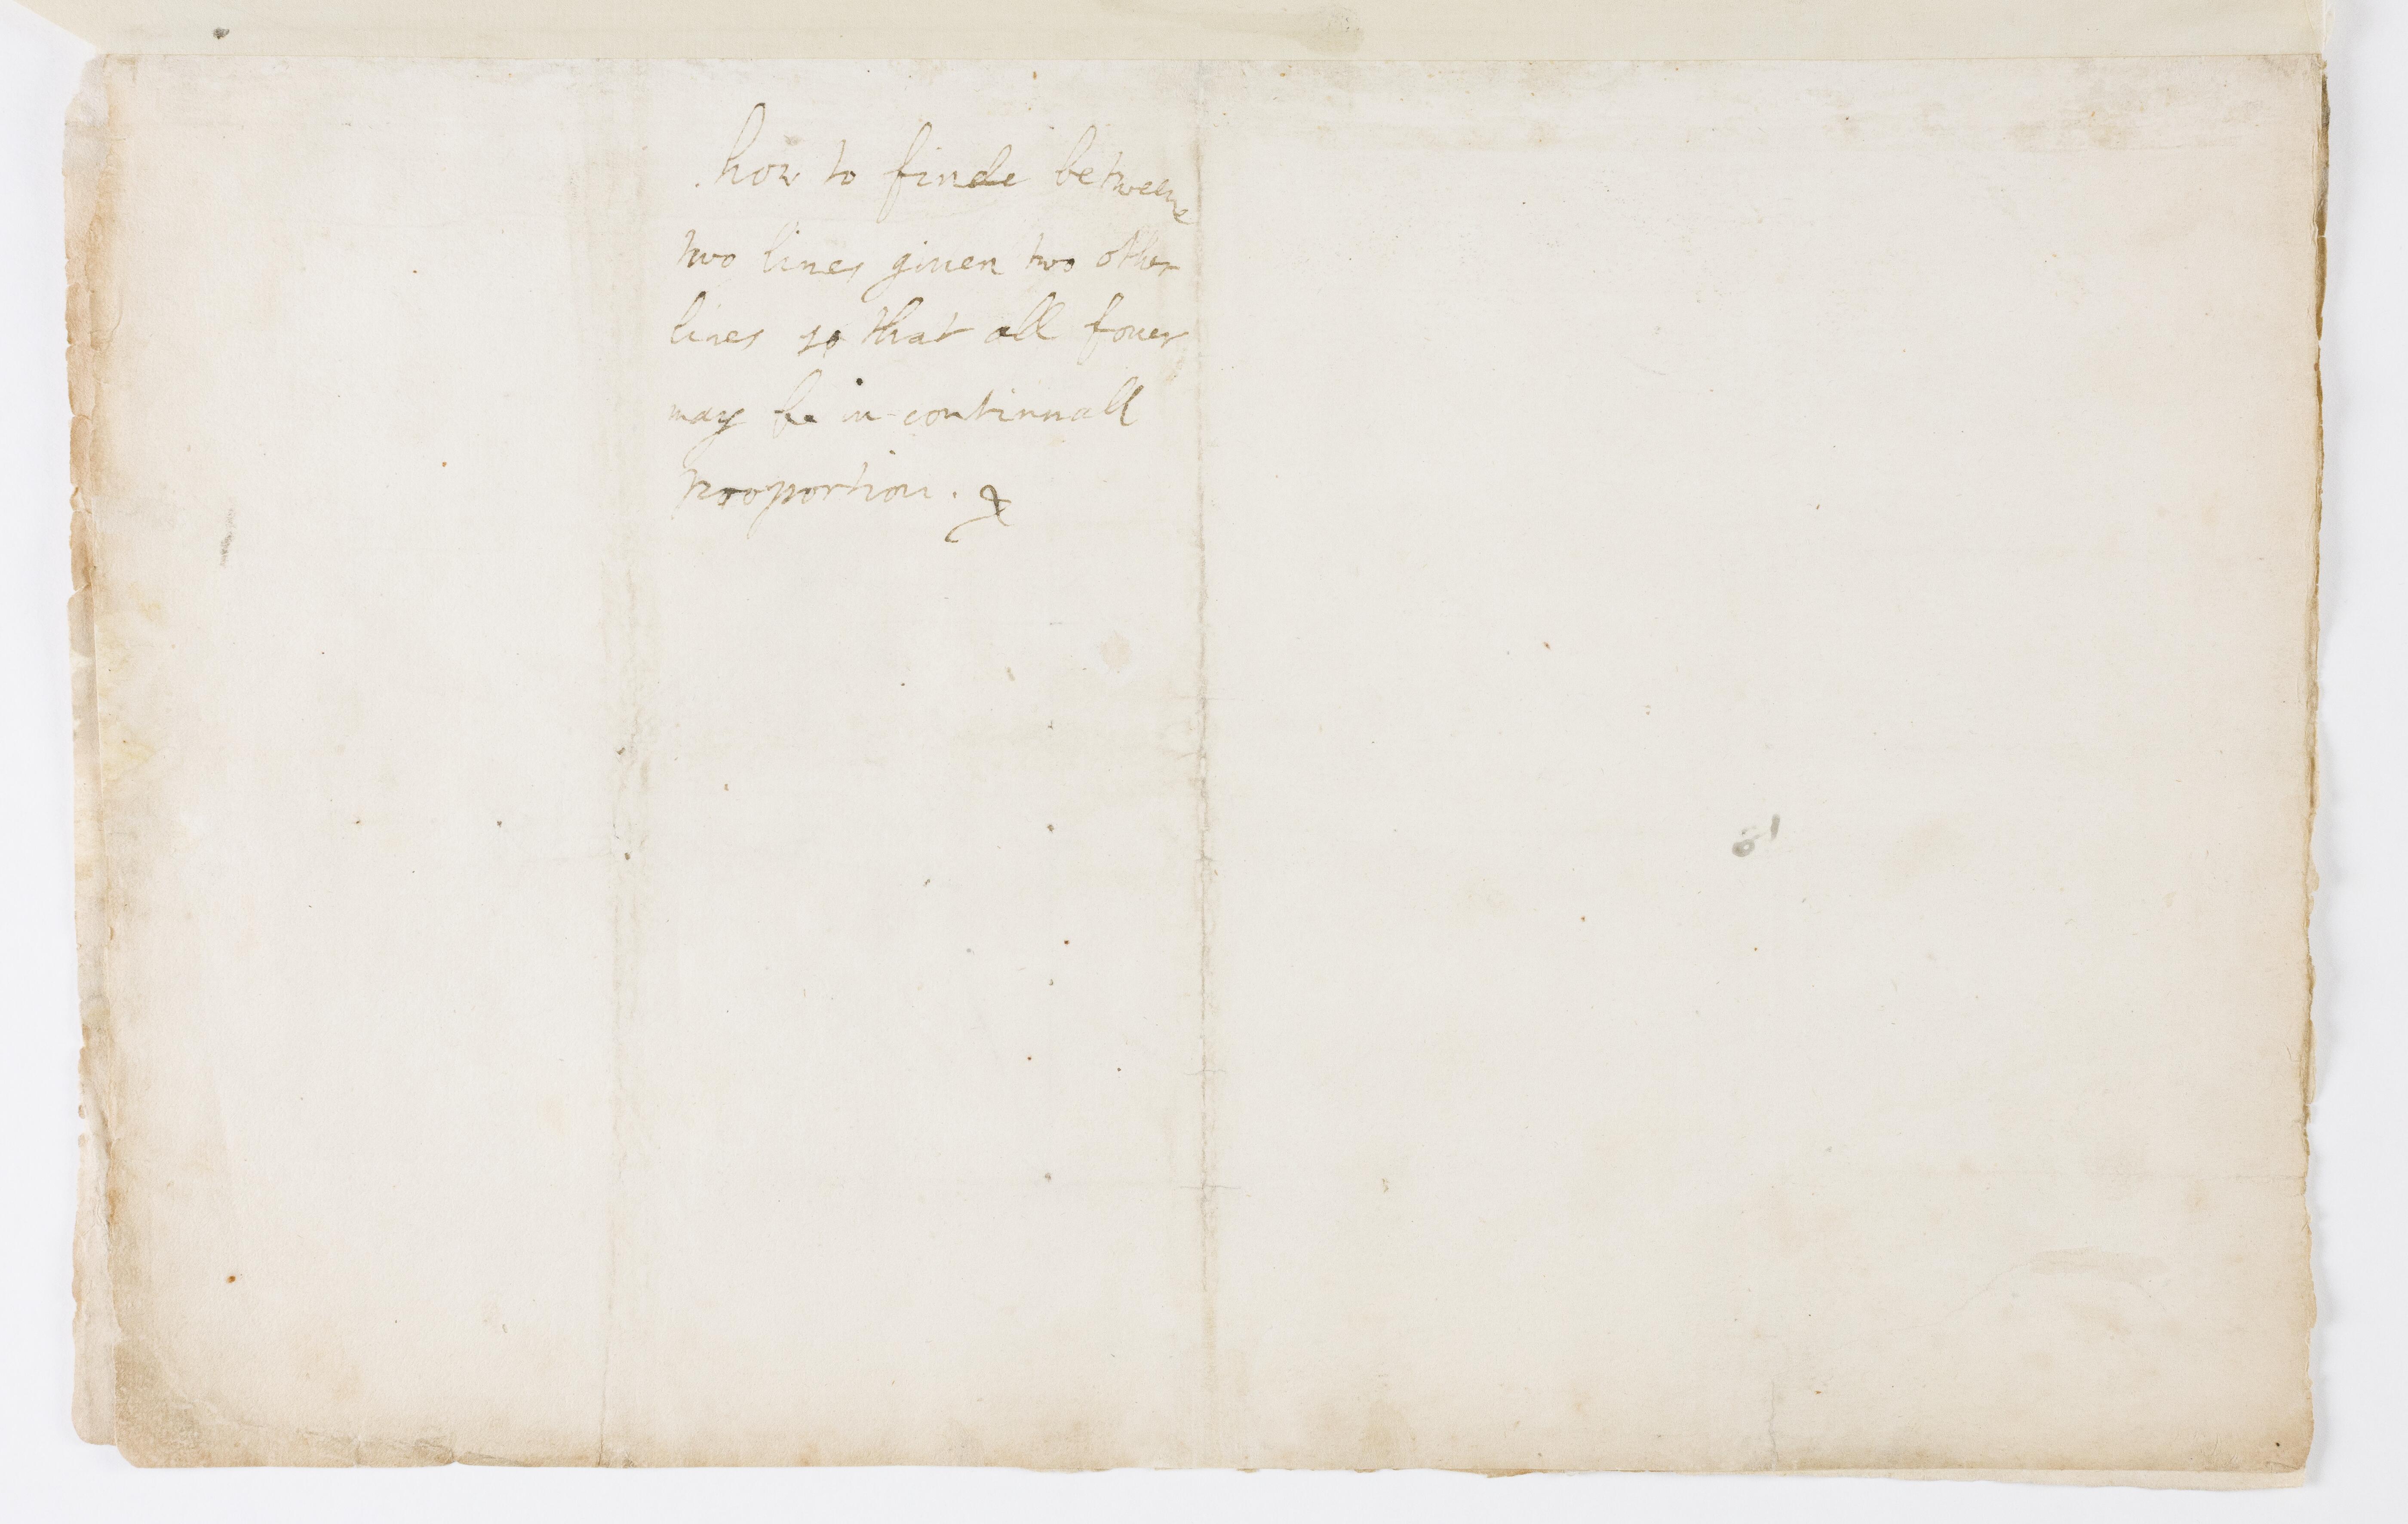 how to finde betweene
two lines given two other
lines so that all fower
may be in continuall
proportion. &
81